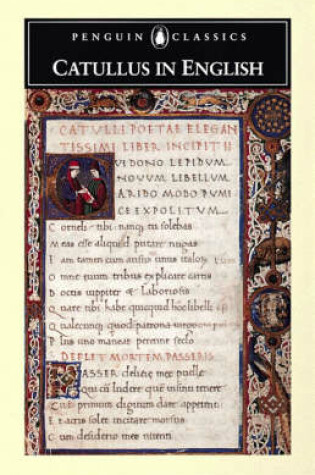 PENGUIN CLASSICS
CATULLUS IN ENGLISH
CATVLLI POETAE ELEGAN
TISSIMI LIBER INCIPIT II
VIDONO LEPIDVM
NOVVM LIBELLVM
ARIDO MODO PVMI
CE EXPOLITVM
Corneli tibi nanq tu solebas
Meas esse aliquid putare nugas
Iam tum cum ausus unus italoꝝ
Omne euum tribus explicare cartis
Doctis iuppiter & Laboriosis
Quare tibi habe quicquid hoc libelli
Qualecunq quod patrona
Plus uno maneat perenne seclo
DEFLET MORTEM PASSERIS
PASSER delitię meę puellę
Qui cū ludere quē in sinu tenere
Cui primum digitum dare appetenti
Et acris solet incitare morsus
Cum desiderio meo nitenti